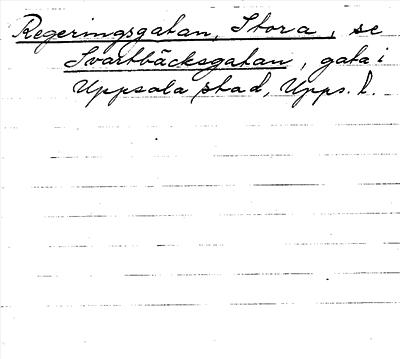 Regeringsgatan, Stora, se
Svartbäcksgatan, gata i
Uppsala stad, Upps. l.